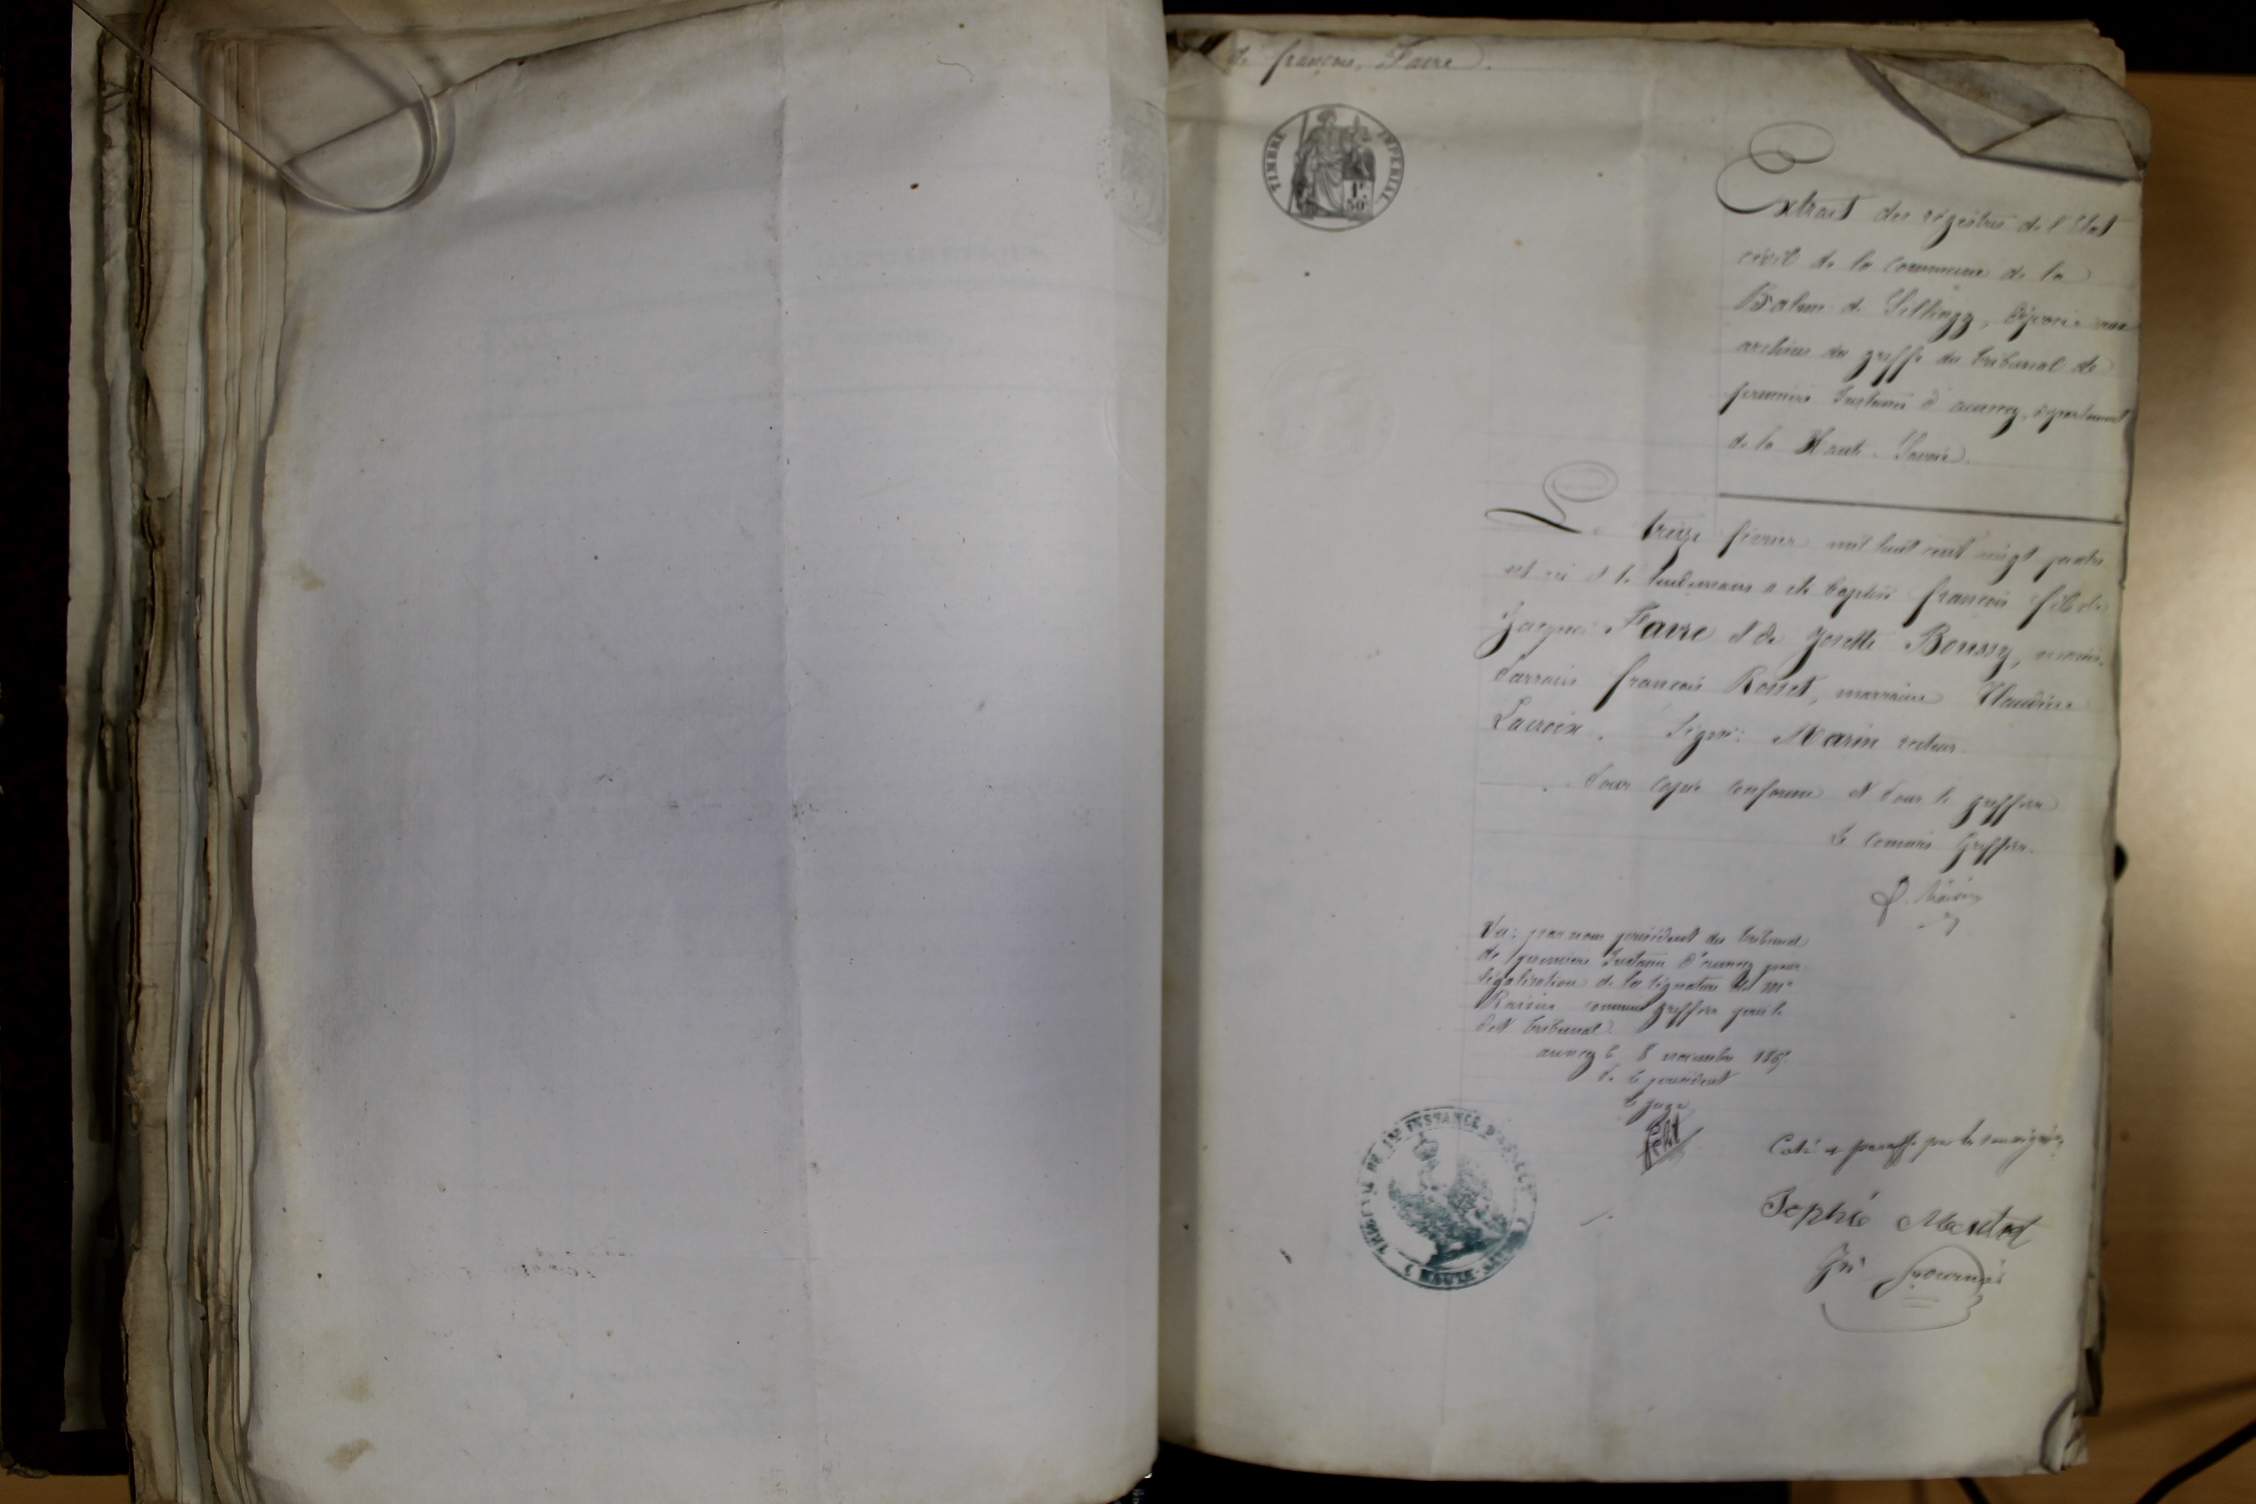 de françois Favre.
TIMBRE IMPERIAL
1F
50c
Extrait des régistres de l'Etat
civil de la commune de la
Balme de Sillingy, déposés aux
archives du greffe du tribunal de
première Instance d'annecy, département
de la Haute-Savoie.
Le treize février mil huit cent vingt quatre
est né et le lendemain a été baptisé françois fils de
Jacques Favre et de Josette Boussy, mariés.
Parrain françois Rosset, marraine Claudine
Lacroix. Signé: Marin recteur.
Pour copie conforme et Pour le greffier
Le commis Greffier.
Vu: par nous président du tribunal
de première Instance d'annecy pour
légalisation de la signature de Me
commis greffier près le
dit tribunal.
annecy le 8 novembre 186
P. le président
le juge
TRIBUNAL DE 1RE INSTANCE D'ANNECY
(HAUTE-SAVOIE)
Coté et paraffé par les soussignés
Sophie